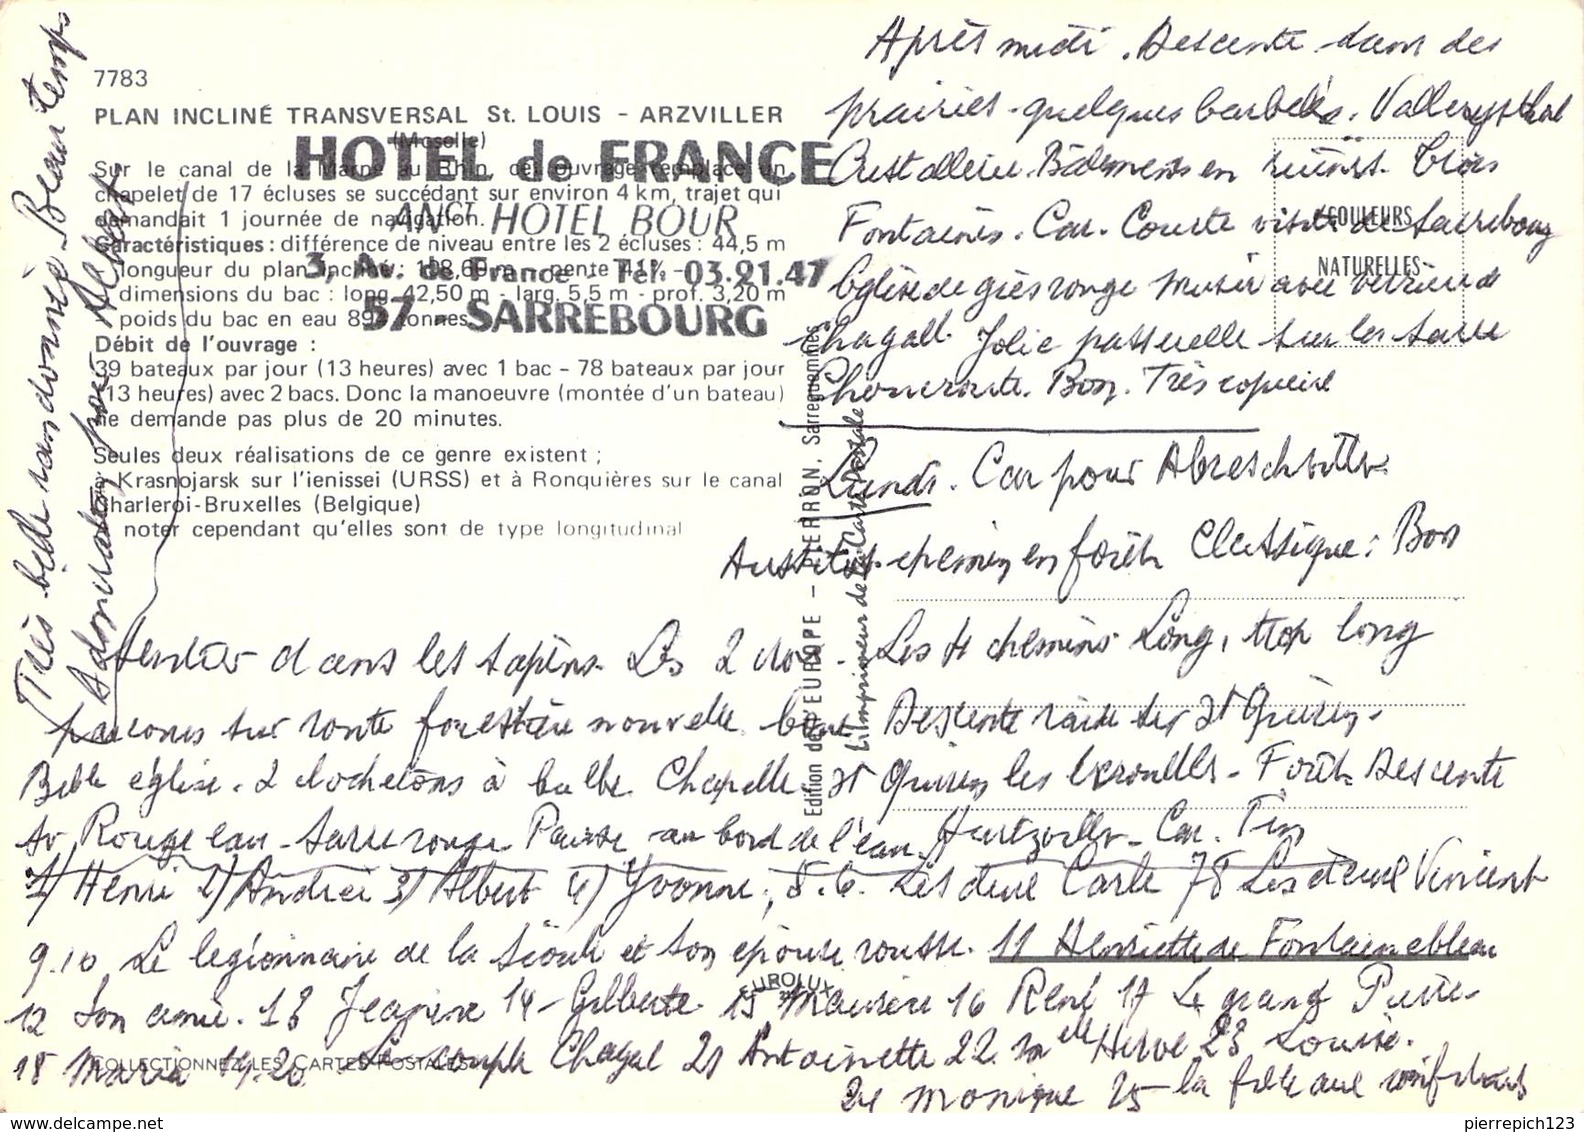 7783
PLAN INCLINÉ TRANSVERSAL St. LOUIS - ARZVILLER
(Moselle)
Sur le canal de la Marne au Rhin, cet ouvrage remplace un
chapelet de 17 écluses se succédant sur environ 4 km, trajet qui
demandait 1 journée de navigation.
Caractéristiques : différence de niveau entre les 2 écluses : 44,5 m
longueur du plan incliné : 108,69 m - pente 41% -
dimensions du bac : long. 42,50 m - larg. 5,5 m - prof. 3,20 m
- poids du bac en eau 89 tonnes
Débit de l'ouvrage :
39 bateaux par jour (13 heures) avec 1 bac - 78 bateaux par jour
(13 heures) avec 2 bacs. Donc la manoeuvre (montée d'un bateau)
ne demande pas plus de 20 minutes.
Seules deux réalisations de ce genre existent ;
Krasnojarsk sur l'ienissei (URSS) et à Ronquières sur le canal
Charleroi-Bruxelles (Belgique)
noter cependant qu'elles sont de type longitudinal
HOTEL de FRANCE
ANCT HOTEL BOUR
3, Av. de France - Tél. 03.21.47
57 - SARREBOURG
Très belle randonnée Beau temps
Admiration pour Albert
Après midi. Descente dans des
prairies - quelques barbelés. Vallerysthal
Cristallerie. Bâtiments en ruines. Trois
Fontaines. Car. Courte visite de Sarrebourg
Eglise de grès rouge Musée avec verrière de
Chagall. Jolie passerelle sur la Sarre
Choucroute. Bon. Très copieuse
COULEURS
NATURELLES
Lundi. Car pour Abreschviller
Aussitôt chemin en forêt Classique : Bon
sentier dans les sapins. Les 2 croix - Les 4 chemins Long, trop long
parcours sur route forestière nouvelle. Descente raide sur St Quirin.
Belle église. 2 clochetons à bulbe. Chapelle St Quirin les - Forêt Descente
sur Rouge eau - Sarre rouge. Pause au bord de l'eau. Hartzviller - Car. Fin
1) Henri 2) Andrée 3) Albert 4) Yvonne, 5.6. Les deux Carle 78 Les deux Vincent
9.10 Le légionnaire de la Sioule et son épouse rousse. 11 Henriette de Fontainebleau
12 Son amie. 13 Jeanine 14 - Gilberte. 15 Maurice 16 René 17 Le grand Pierre
18 Maria 19.20 Le couple Chagal 21 Antoinette 22 Melle Hervé 23 Louise.
24 Monique 25 - la fille aux
Edition de l'EUROPE - PIERRON, Sarreguemines
L'Imprimeur de la Carte Postale
EUROLUX
COLLECTIONNEZ LES CARTES POSTALES
pierrepich123